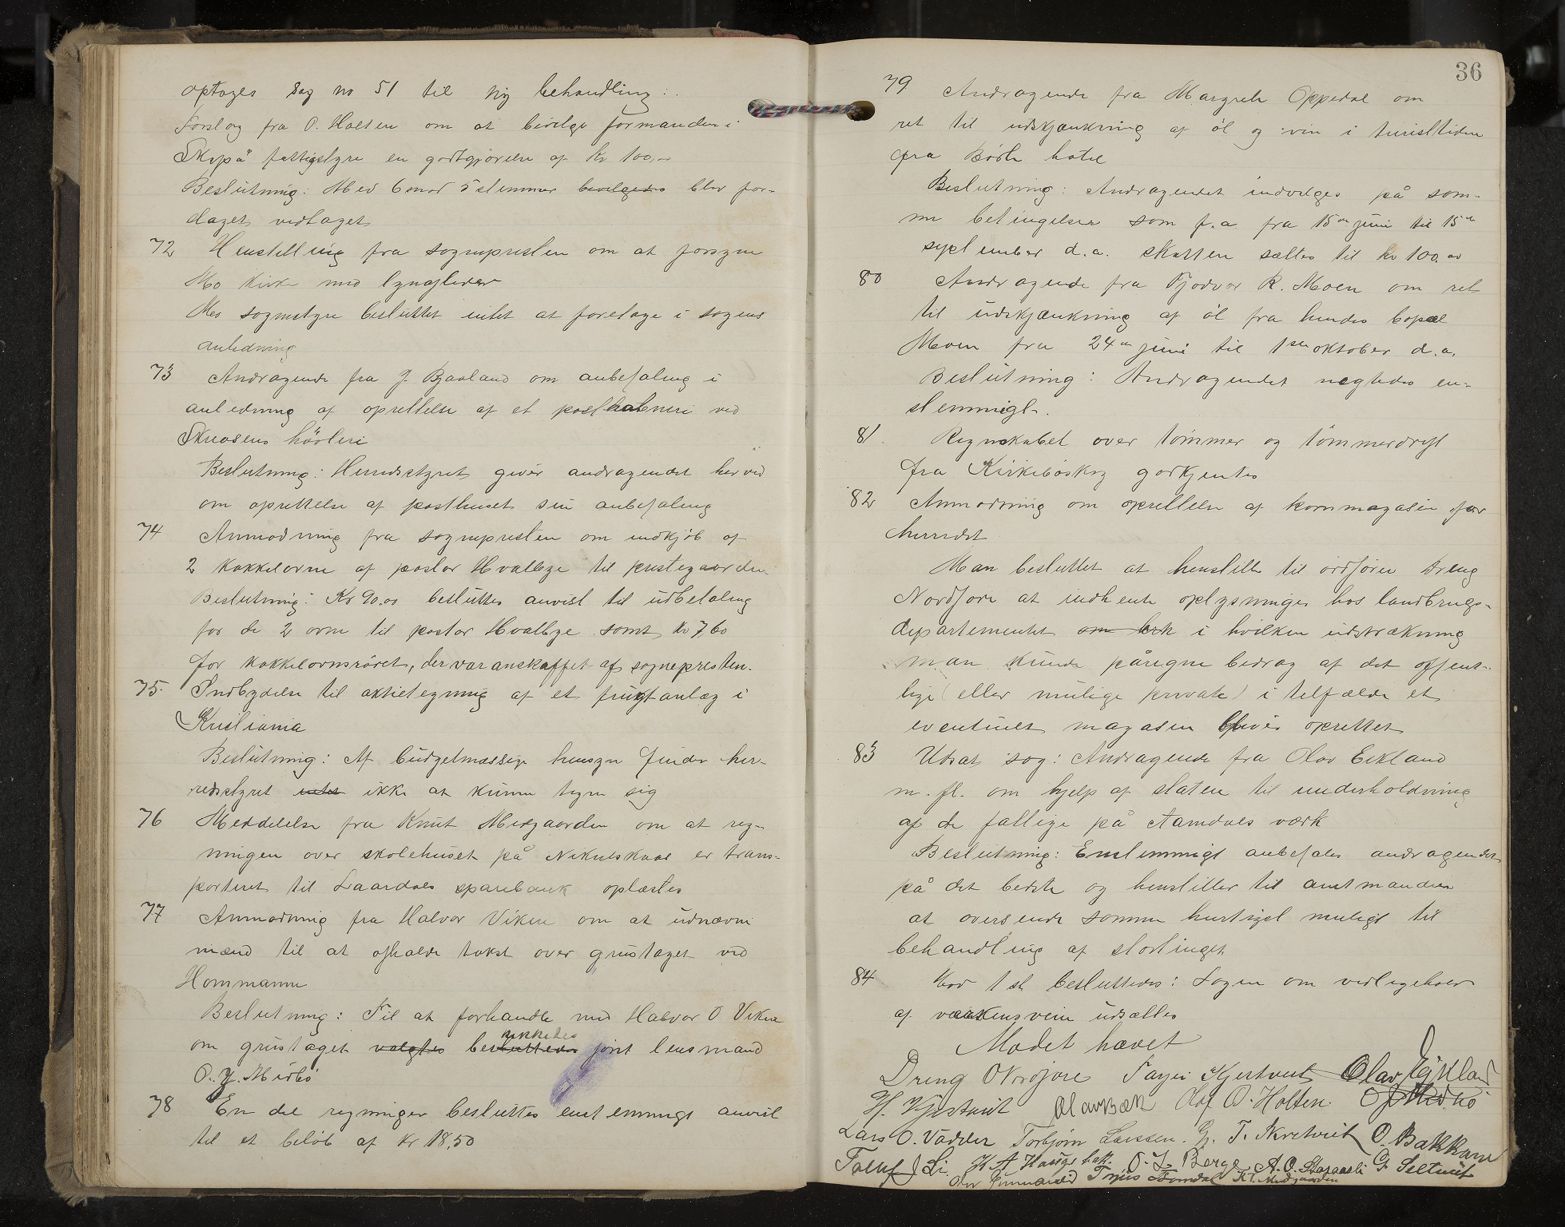 optages sag no 51 til ny behandling:
Forslag fra O. Holten om at bevilge formanden i
Skapå fattigstyre en godtgjørelse af kr 100,-
Beslutning: Med 6 mod 5 stemmer bevilgedes blev for-
slaget vedtaget
72 Henstilling fra sognepresten om at forsyne
Mo kirke med lynafleder
Mo sognstyre besluttet intet at foretage i sagens
anledning
73 Andragende fra J. Bjaaland om anbefaling i
anledning af oprettelse af et postaabneri ved
Skreosens høvleri
Beslutning: Herredstyret giver andragendet herved
om oprettelse af posthuset sin anbefaling
74 Anmodning fra sognepresten om indkjøb af
2 kakkelovne af pastor Hvalbye til prestegaarden
Beslutning: Kr 90.00 besluttes anvist til udbetaling
for de 2 ovne til pastor Hvalbye samt kr 7,60
for kakkelovnsrøret, der var anskaffet af sognepresten.
75. Indbydelse til aktietegning af et frugtanlæg i
Kristiania
Beslutning: Af budgetmæssige hensyn finder her-
redsstyret intet ikke at kunne tegne sig
76 Meddelelse fra Knut Midgaarden om at reg-
ningen over skolehuset på Nikulskaas er trans-
porteret til Laardals sparebank oplæstes
77 Anmodning fra Halvor Viken om at udnævne
mænd til at afholde takst over grustaget ved
Hommamme
Beslutning: Til at forhandle med Halvor O Viken
om grustaget valgtes besluttedes jønt lensmand
O. J. Midbø
78 En del regninger besluttes enstemmigt anvist
til et beløb af kr 18,50
36
79 Andragende fra Margrete Oppedal om
ret til udskjænkning af øl og vin i turisttiden
fra Børte hotel
Beslutning: Andragendet indvilges på sam-
me betingelser som f.a fra 15de juni til 15de
september d.a. skatten sættes til kr 100.00
80 Andragende fra Gjodvor R. Moen om ret
til udskjænkning af øl fra hendes bopæl
Moen fra 24de juni til 1ste oktober d.a.
Beslutning: Andragendet negtedes en-
stemmigt.
81. Regnskabet over tømmer og tømmerdrift
fra Kirkebøskog godkjentes
82 Anmodning om oprettelse af kornmagasin for
herredet
Man besluttet at henstille til ordfører Dreng
Nordjore at indhente oplysninger hos landbrugs-
departementet om krk i hvilken udstrækning
man kunde påregne bedrag af det offent-
lige (eller mulige private) i tilfælde et
eventuelt magasin blives oprettet
83 Udsat sag: Andragende fra Olav Eikland
m. fl. om hjelp af staten til underholdning
af de fattige på Aamdals værk
Beslutning: Enstemmigt anbefales andragendet
på det bedste og henstiller til amtmanden
at oversende samme hurtigst muligt til
behandling af stortinget
84 Mod 1 st. besluttedes: Sagen om vedligehold
af værkensveie udsættes
Mødet hævet
Dreng O Nordjore Tarjei Hjertveit Olav Eikland
H. Hjertveit Olav Bæk Olaf O. Holten O J Midbø
Lars O. Vadder Torbjørn Larssen. G. T. Skretveit O. Bakkane
Tallef J Li H A Haugebak. O. L. Berge A. O. Skapaali G Seltveit